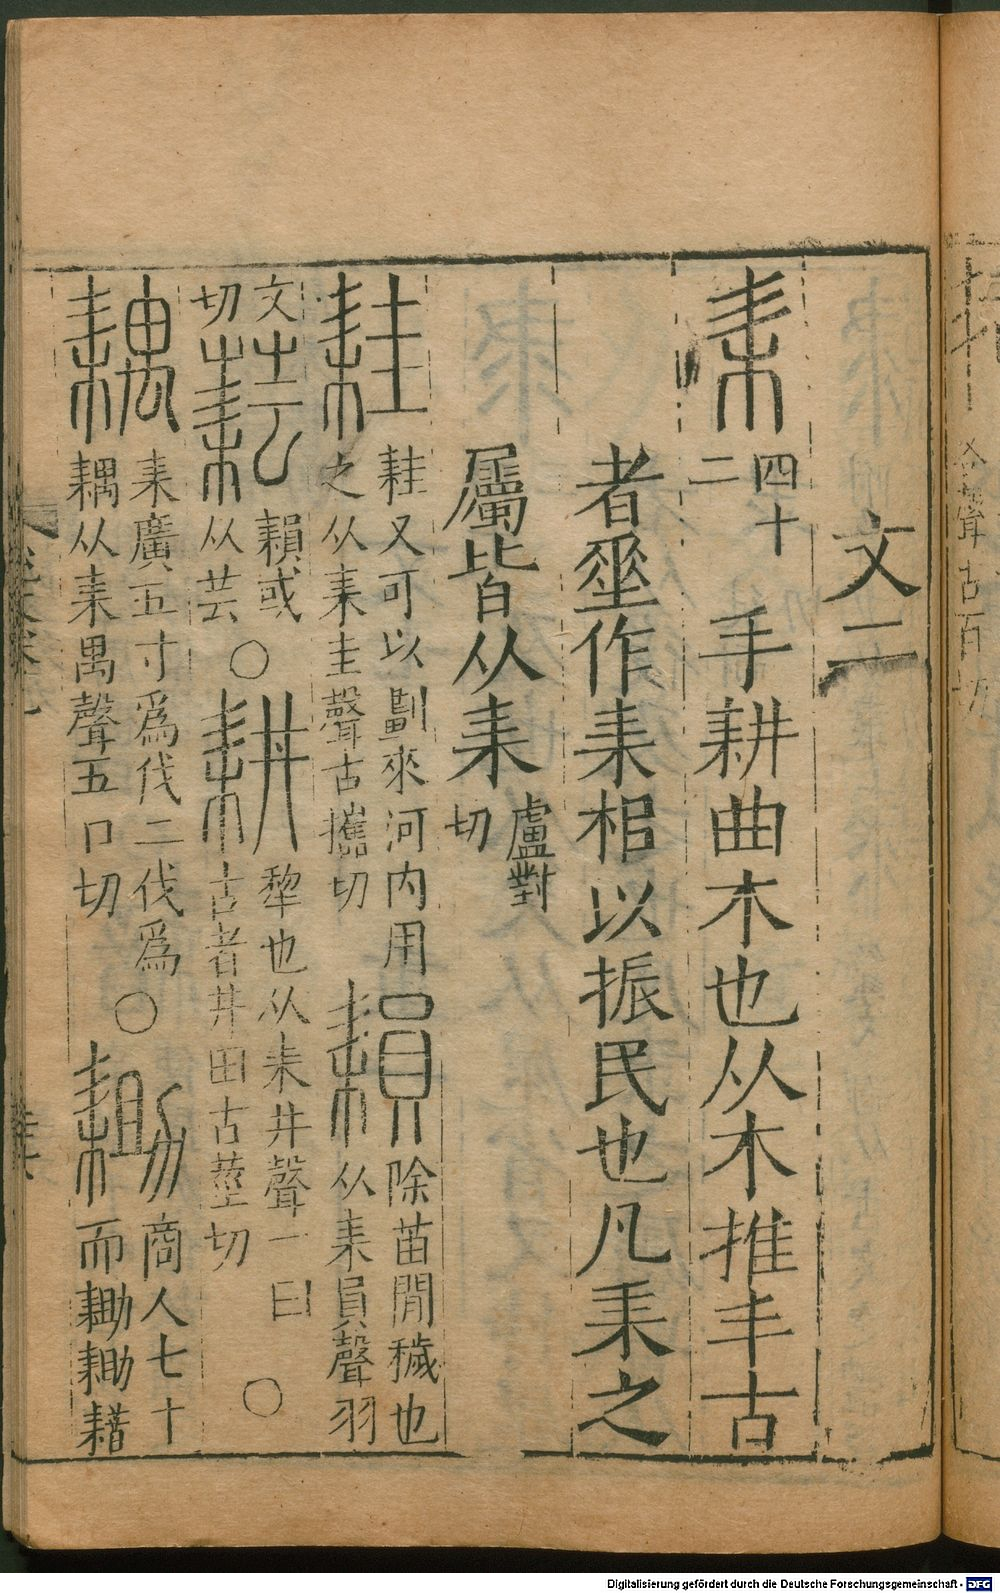 文二
耒 四十二 手耕曲木也从木推丰古
者㘸作耒梠以振民也凡耒之
屬皆从耒 盧對切
耕 耕又可以劃來河内用
之从耒圭聲古攜切
䎱 除苗閒穢也
从耒員聲羽
文切
䕀 䎱或
从芸
○
耕 犂也从耒井聲一曰
古者井田古莖切
○
耦 耒廣五寸爲伐二伐爲
耦从耒禺聲五口切
○
耡 商人七十
而耡耡耤
Digitalisierung gefördert durch die Deutsche Forschungsgemeinschaft - DFG